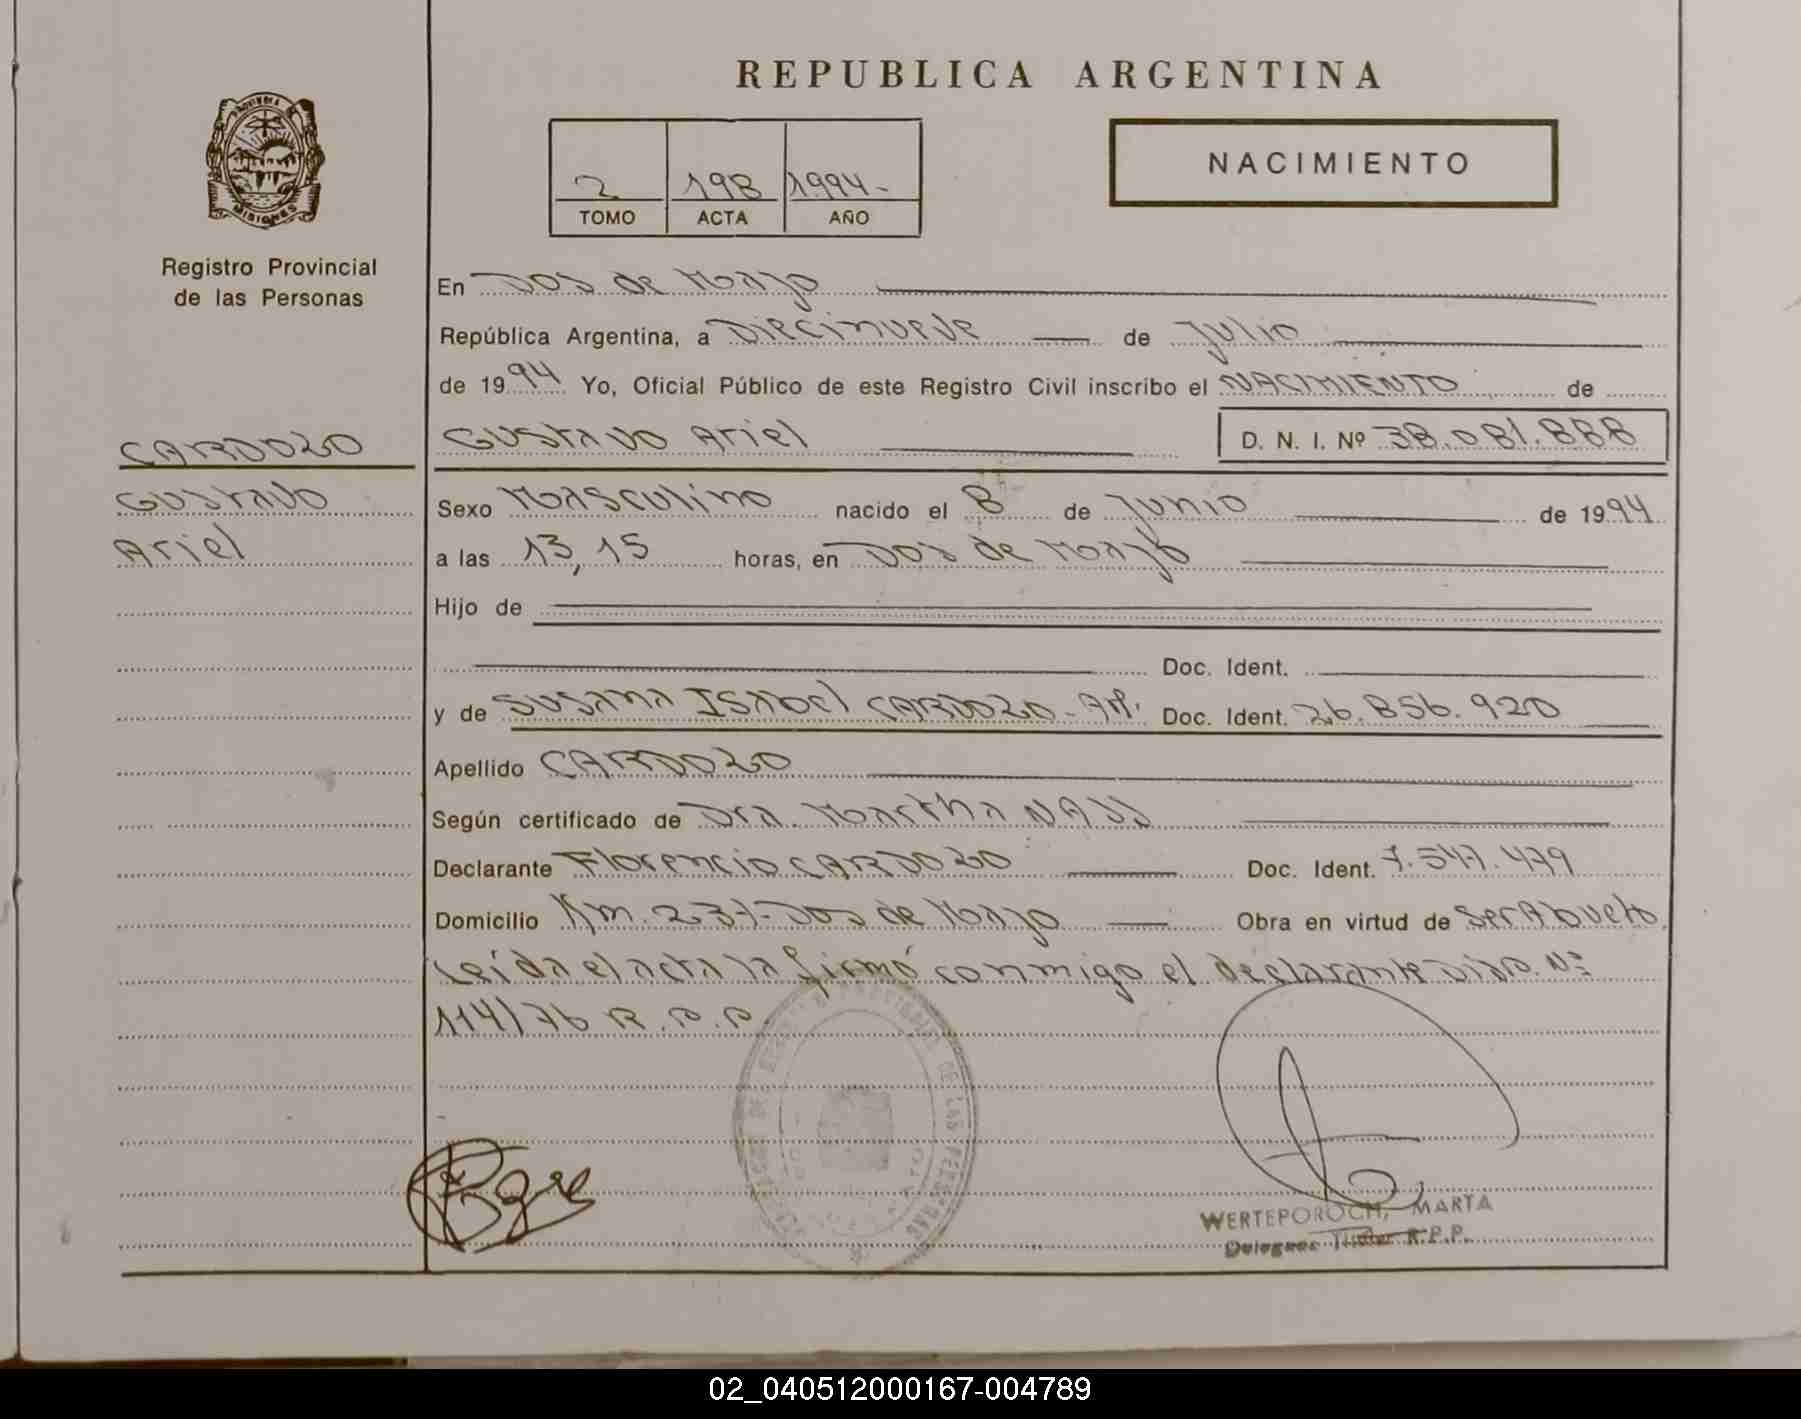 REPUBLICA ARGENTINA
2 198 1994-
TOMO ACTA AÑO
NACIMIENTO
PROVINCIA DE
MISIONES
Registro Provincial
de las Personas
CARDOZO
Gustavo
Ariel
En Dos de Mayo
República Argentina, a Diecinueve de Julio
de 1994 Yo, Oficial Público de este Registro Civil inscribo el NACIMIENTO de
Gustavo Ariel D. N. I. Nº 38.081.888
Sexo Masculino nacido el 8 de Junio de 1994
a las 13,15 horas, en Dos de Mayo
Hijo de
Doc. Ident.
y de SUSANA ISABEL CARDOZO - Doc. Ident. 26.856.920
Apellido CARDOZO
Según certificado de Dra. Martha
Declarante Florencio CARDOZO Doc. Ident. 7.547.479
Domicilio Km. 237-Dos de Mayo Obra en virtud de ser Abuelo
Leída el acta la firmó conmigo el declarante Disp. Nº
114/76 R.P.P.
PROVINCIAL DE LAS PERSONAS
WERTEPOROCH, MARTA
Titular R.P.P.
02_040512000167-004789